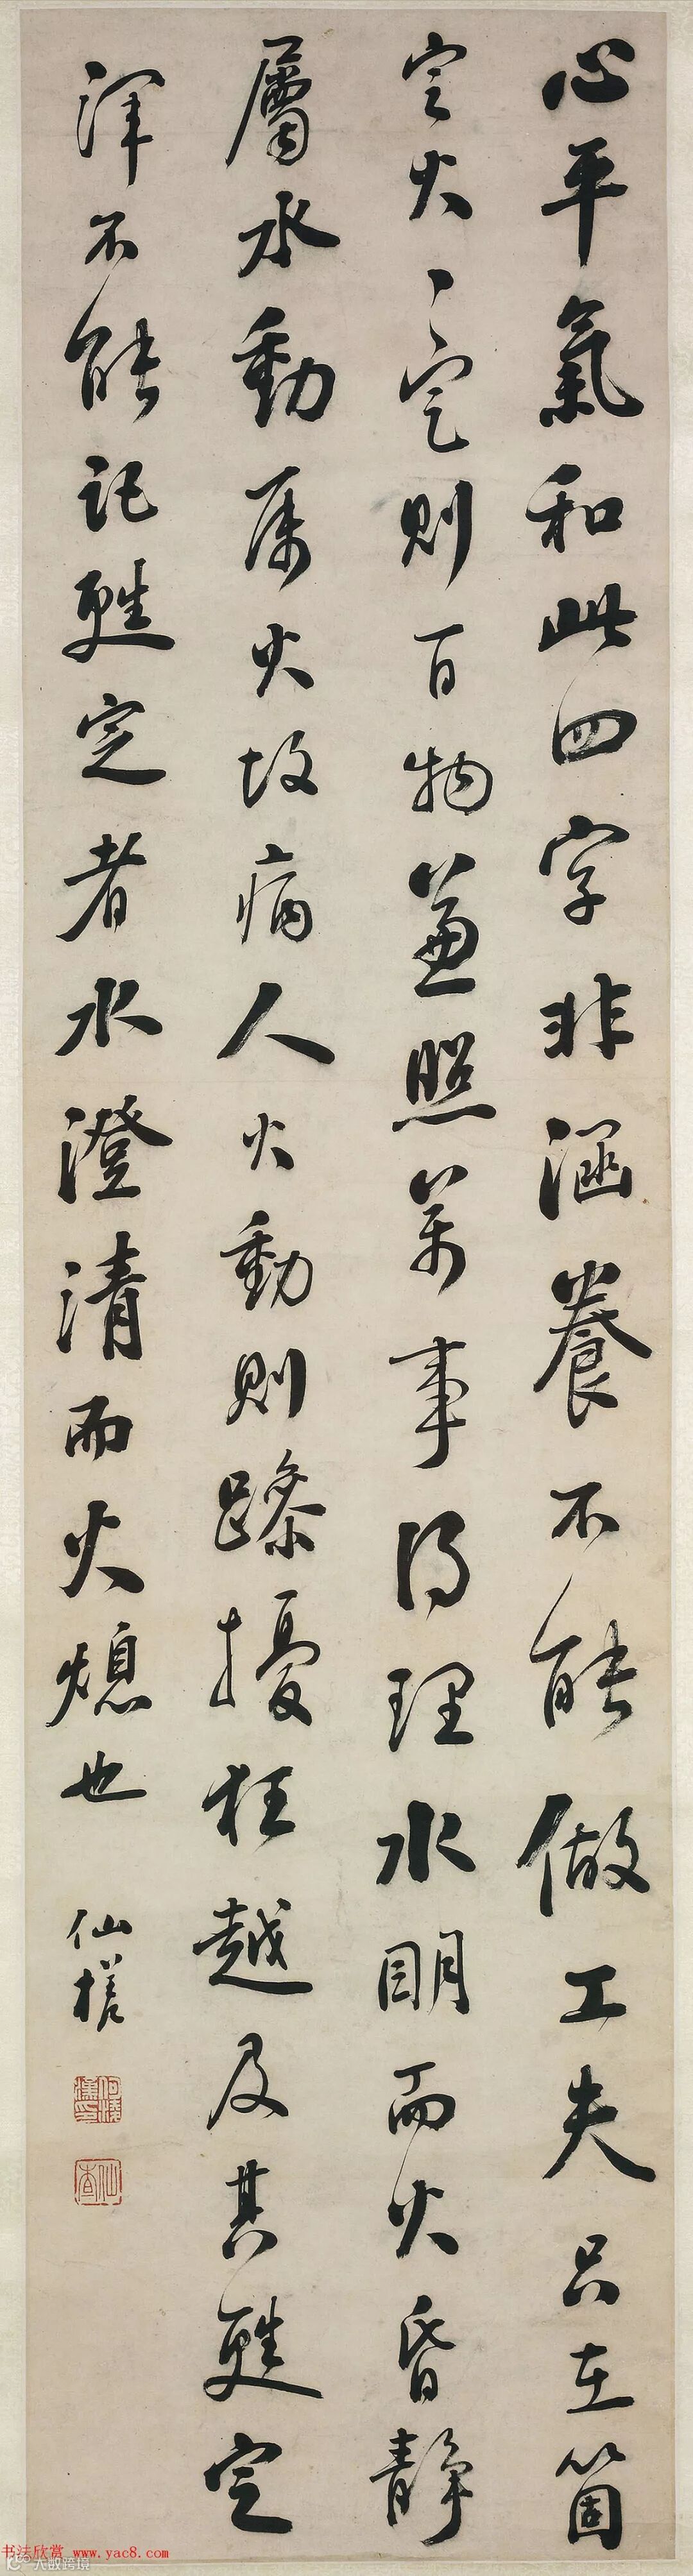 心平氣和此四字非涵養不能做工夫只在箇
定火〻定則百物兼照萬事得理水明而火昏静
屬水動属火故病人火動則躁擾狂越及其甦定
渾不能記甦定者水澄清而火熄也
仙槎
书法欣赏 www.yac8.com
大数跨境